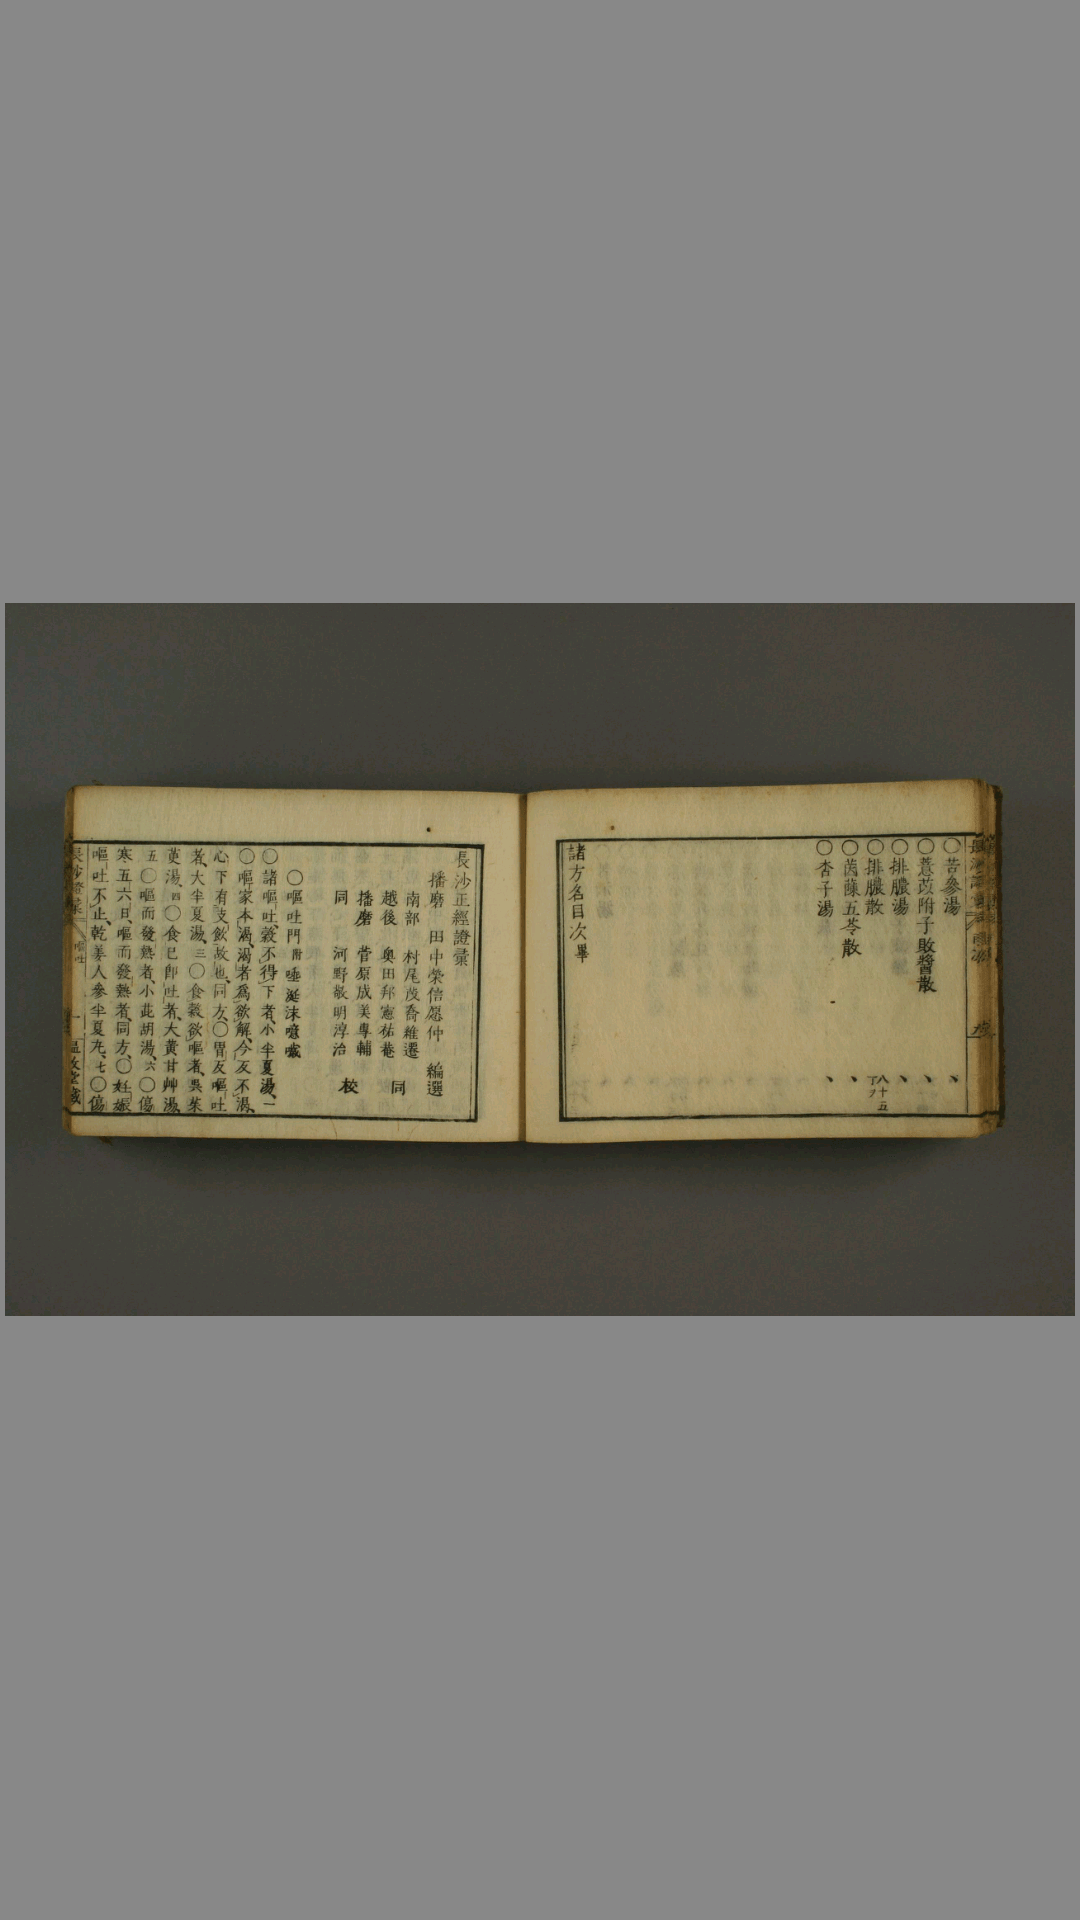 〇苦參湯 、
〇薏苡附子敗醬散 、
〇排膿湯 、
〇排膿散 八十五丁ヲ
〇茵蔯五苓散 、
〇杏子湯 、
諸方名目次畢
長沙正經證彙
播磨 田中榮信愿仲 編選
南部 村尾茂喬維遷
越後 奥田邦憲祐菴 同
播磨 菅原成美專輔
同 河野敬明淳治 校
〇嘔吐門附唾涎沫噫噦
〇諸嘔吐、穀不得下者、小半夏湯、一
〇嘔家本渴、渴者爲欲解、今反不渴、
心下有支飲故也、同方、〇胃反嘔吐
者、大半夏湯、三〇食穀欲嘔者、吳茱
萸湯、四〇食已即吐者、大黃甘艸湯、
五〇嘔而發熱者、小茈胡湯、六〇傷
寒五六日、嘔而發熱者、同方、〇妊娠
嘔吐不止、乾姜人參半夏丸、七〇傷
長沙證彙